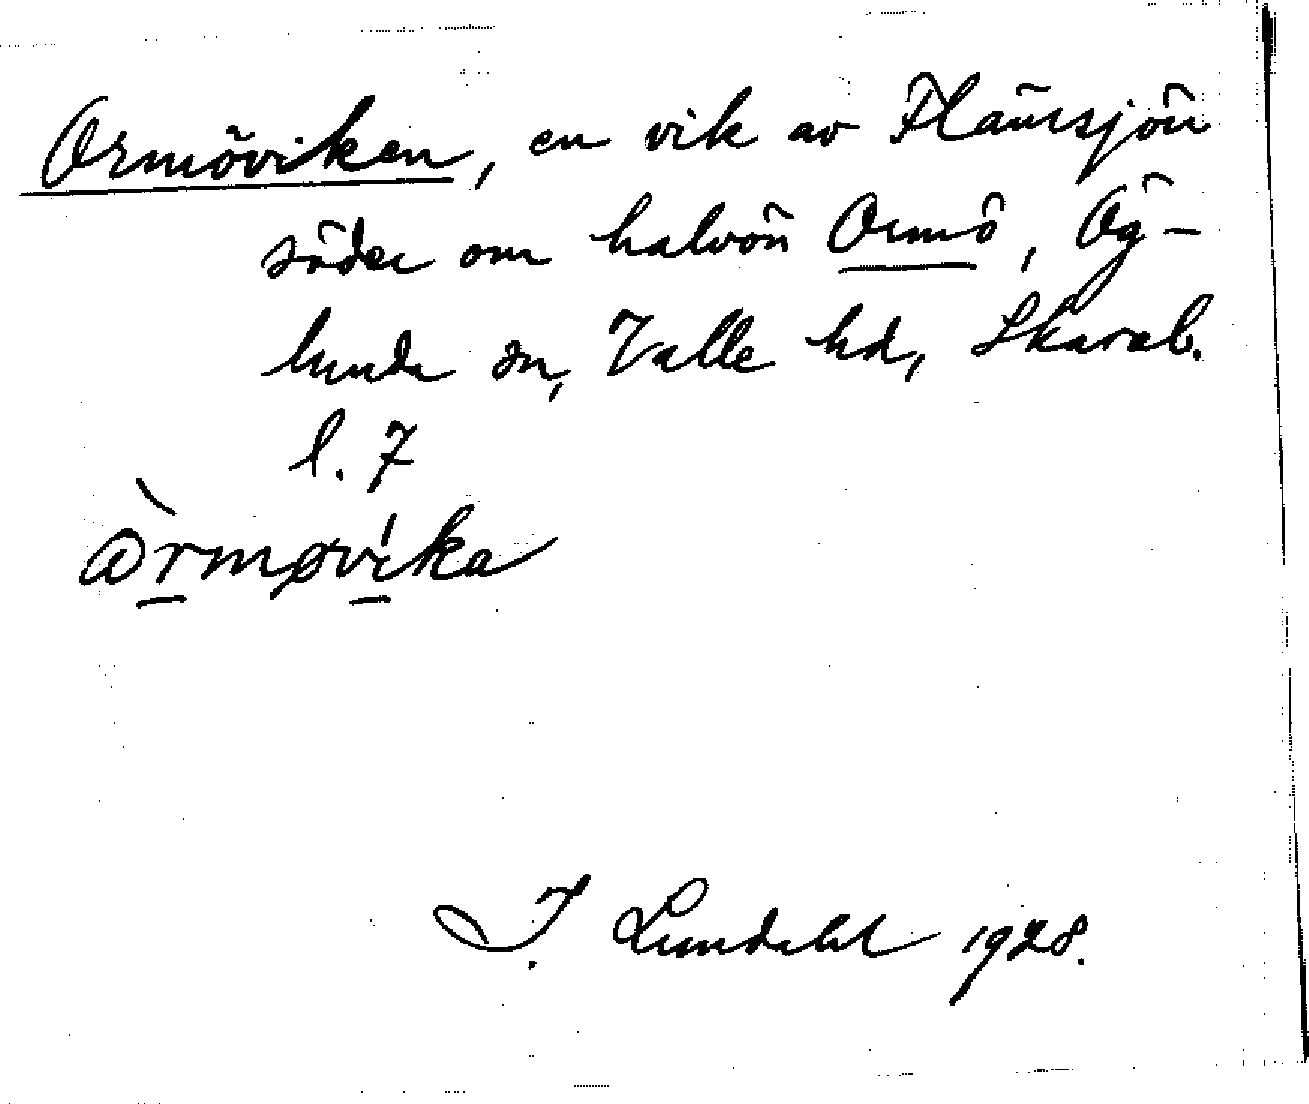 Ormöviken, en vik av Flämsjön
söder om halvön Ormö, Ög-
lunda sn, Valle hd, Skarab.
l. 7
òrmøvíka
I. Lundahl 1928.